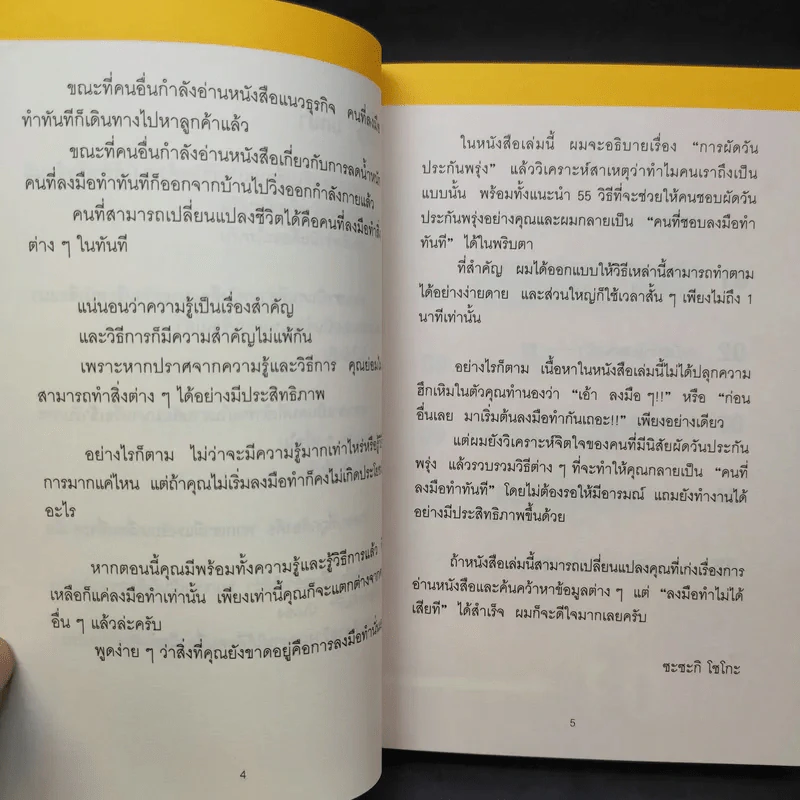 ขณะที่คนอื่นกำลังอ่านหนังสือแนวธุรกิจ คนที่ลงมือ
ทำทันทีก็เดินทางไปหาลูกค้าแล้ว
ขณะที่คนอื่นกำลังอ่านหนังสือเกี่ยวกับการลดน้ำหนัก
คนที่ลงมือทำทันทีก็ออกจากบ้านไปวิ่งออกกำลังกายแล้ว
คนที่สามารถเปลี่ยนแปลงชีวิตได้คือคนที่ลงมือทำสิ่ง
ต่าง ๆ ในทันที
แน่นอนว่าความรู้เป็นเรื่องสำคัญ
และวิธีการก็มีความสำคัญไม่แพ้กัน
เพราะหากปราศจากความรู้และวิธีการ คุณย่อมไม่
สามารถทำสิ่งต่าง ๆ ได้อย่างมีประสิทธิภาพ
อย่างไรก็ตาม ไม่ว่าจะมีความรู้มากเท่าไหร่หรือรู้วิธี
การมากแค่ไหน แต่ถ้าคุณไม่เริ่มลงมือทำก็คงไม่เกิดประโยชน์
อะไร
หากตอนนี้คุณมีพร้อมทั้งความรู้และรู้วิธีการแล้ว
เหลือก็แค่ลงมือทำเท่านั้น เพียงเท่านี้คุณก็จะแตกต่างจาก
อื่น ๆ แล้วล่ะครับ
พูดง่าย ๆ ว่าสิ่งที่คุณยังขาดอยู่คือการลงมือทำ
4
ในหนังสือเล่มนี้ ผมจะอธิบายเรื่อง “การผัดวัน
ประกันพรุ่ง” แล้ววิเคราะห์สาเหตุว่าทำไมคนเราถึงเป็น
แบบนั้น พร้อมทั้งแนะนำ 55 วิธีที่จะช่วยให้คนชอบผัดวัน
ประกันพรุ่งอย่างคุณและผมกลายเป็น “คนที่ชอบลงมือทำ
ทันที” ได้ในพริบตา
ที่สำคัญ ผมได้ออกแบบให้วิธีเหล่านี้สามารถทำตาม
ได้อย่างง่ายดาย และส่วนใหญ่ก็ใช้เวลาสั้น ๆ เพียงไม่ถึง 1
นาทีเท่านั้น
อย่างไรก็ตาม เนื้อหาในหนังสือเล่มนี้ไม่ได้ปลุกความ
ฮึกเหิมในตัวคุณทำนองว่า “เอ้า ลงมือ ๆ!!” หรือ “ก่อน
อื่นเลย มาเริ่มต้นลงมือทำกันเถอะ!!” เพียงอย่างเดียว
แต่ผมยังวิเคราะห์จิตใจของคนที่มีนิสัยผัดวันประกัน
พรุ่ง แล้วรวบรวมวิธีต่าง ๆ ที่จะทำให้คุณกลายเป็น “คนที่
ลงมือทำทันที” โดยไม่ต้องรอให้มีอารมณ์ แถมยังทำงานได้
อย่างมีประสิทธิภาพขึ้นด้วย
ถ้าหนังสือเล่มนี้สามารถเปลี่ยนแปลงคุณที่เก่งเรื่องการ
อ่านหนังสือและค้นคว้าหาข้อมูลต่าง ๆ แต่ “ลงมือทำไม่ได้
เสียที” ได้สำเร็จ ผมก็จะดีใจมากเลยครับ
ซะซะกิ โชโกะ
5